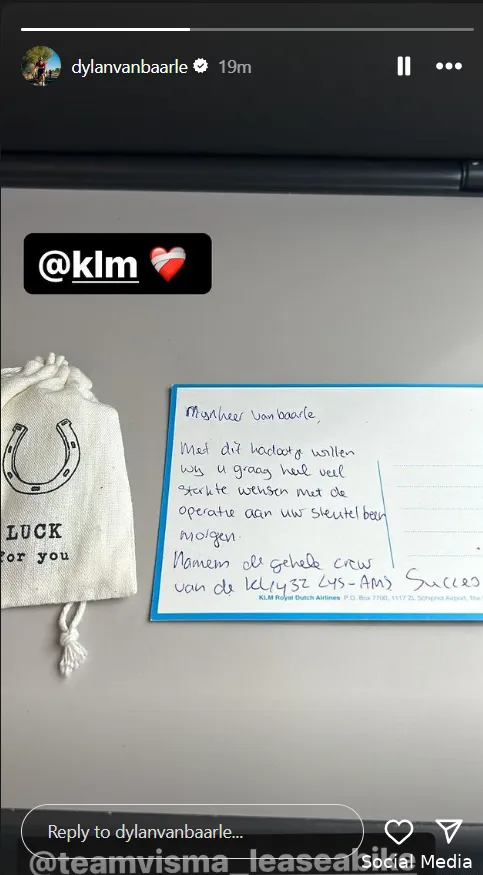 dylanvanbaarle 19m
@klm
LUCK
for you
Mijnheer van baarle,
Met dit kadootje willen
wij u graag heel veel
sterkte wensen met de
operatie aan uw sleutelbeen
morgen.
Namens de gehele crew
van de LYS-AMS Succes
KLM Royal Dutch Airlines P.O. Box 7700, 1117 ZL Schiphol Airport, The
Reply to dylanvanbaarle...
@teamvisma_leaseabike
Social Media